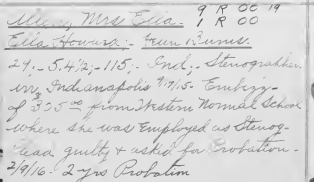 9 R 00 19
Mrs Ella - 1 R 00
Ella Howard; -
29; - 5.4½; - 115; - Ind; - Stenographer
Indianapolis 9/19/15. - Embzz -
of $325.00 from Western Normal School
where she was Employed as Stenog -
Plead guilty & asked for Probation -
2/9/16 - 2 yrs Probation